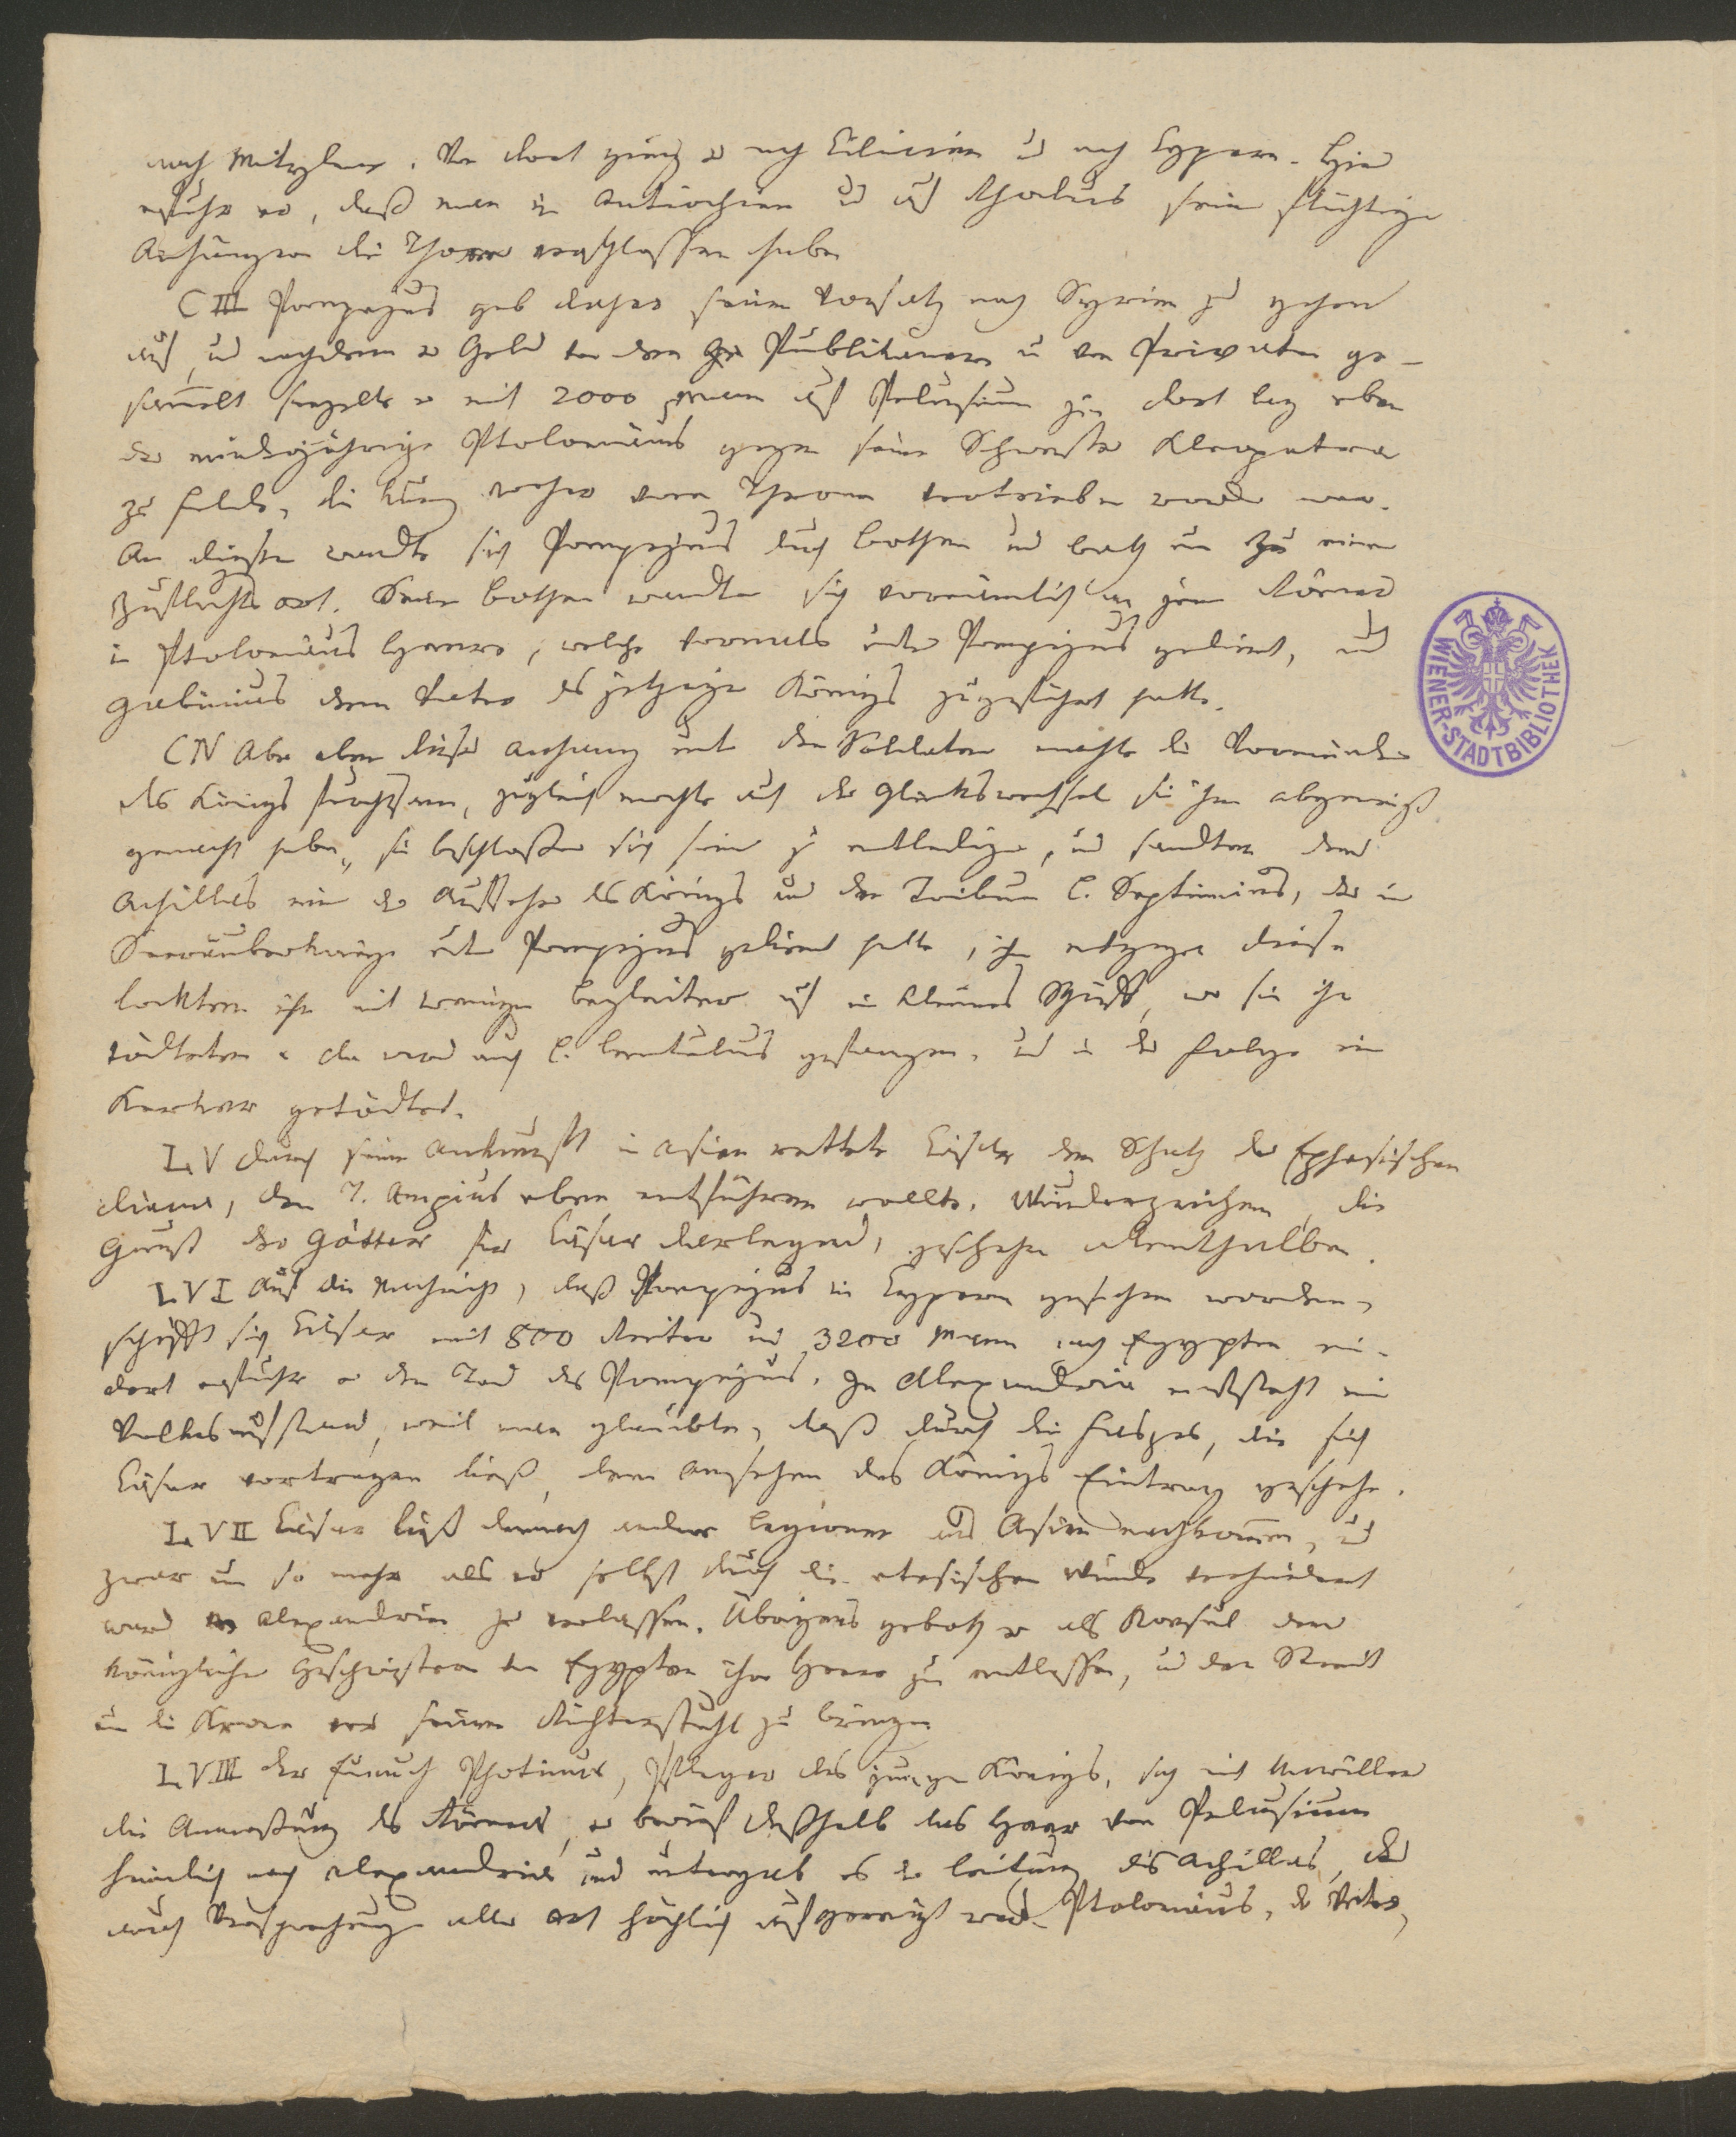 nach Mitylene. Von dort gieng er nach Cilicien und nach Cypern. Hier
erfuhr er, daß man in Antiochien und auf Rhodus seinen flüchtigen
Anhängern die Thore verschlossen habe
CIII Pompejus gab daher seinen Vorsatz nach Syrien zu gehen
auf, und nachdem er Geld von den Publikanern u von Privaten ge-
sammelt segelte er mit 2000 Mann auf Pelusium zu dort lag eben
der minderjährige Ptolomäus gegen seine Schwester Kleopatra
zu Felde, die kurz vorher vom Throne vertrieben worden war.
An diesen wandte sich Pompejus durch Bothen und bath um einen
Zufluchtsort. Seine Bothen wandten sich vornämlich an jene Römer
in Ptolomäus Heere, welche vormals unter Pompejus gedient, und
Gabinius dem Vater des jetzigen Königs zugeführt hatte.
CIV Aber eben dieser Anhang unter den Soldaten machte die Vormünder
des Königs furchtsam, zugleich mochte auch der Glückswechsel sie ihm abgeneigt
gemacht haben, sie beschloßen sich seiner zu entledigen, und sandten den
Achillas einen der Aufseher des Königs und den Tribun L. Septimius, der im
Seeräuberkriege unter Pompejus gedient hatte, ihm entgegen diese
lockten ihn mit wenigen Begleitern auf ein kleines Schiff, wo sie ihn
tödteten. Da ward auch L. Lentulus gefangen, und in der Folge im
Kerker getödtet.
LV durch seine Ankunft in Asien rettete Cäsar den Schatz der Ephesischen
Diana, den T. Ampius eben entführen wollte. Wunderzeichen, die
Gunst der Götter für Cäsar darlegend, geschehen allenthalben.
LVI Auf die Nachricht, daß Pompejus in Cypern gesehen worden,
schifft sich Cäsar mit 800 Reiter und 3200 Mann nach Egypten ein.
dort erfuhr er den Tod des Pompejus. In Alexandria entsteht ein
Volksaufstand, weil man glaubte, daß durch die Fasces, die sich
Cäsar vortragen ließ, dem Ansehen des Königs Eintrag geschehe.
LVII Cäsar ließ darnach andere Legionen aus Asien nachkommen, und
zwar um so mehr als er selbst durch die etesischen Winde verhindert
ward Alexandrien zu verlassen. Übrigens geboth er als Konsul den
königlichen Geschwistern von Egypten ihre Heere zu entlassen, und den Streit
um die Krone vor seinen Richterstuhl zu bringen
LVIII der Eunuch Photinus, Pfleger des jungen Königs, sah mit Unwillen
die Anmaßung des Römers, er berief deßhalb das Heer von Pelusium
heimlich nach Alexandria und untergab es der Leitung des Achillas, der
durch Versprechungen aller Art höchlich aufgereizt ward. Ptolomäus, der Vater,
WIENER-STADTBIBLIOTHEK